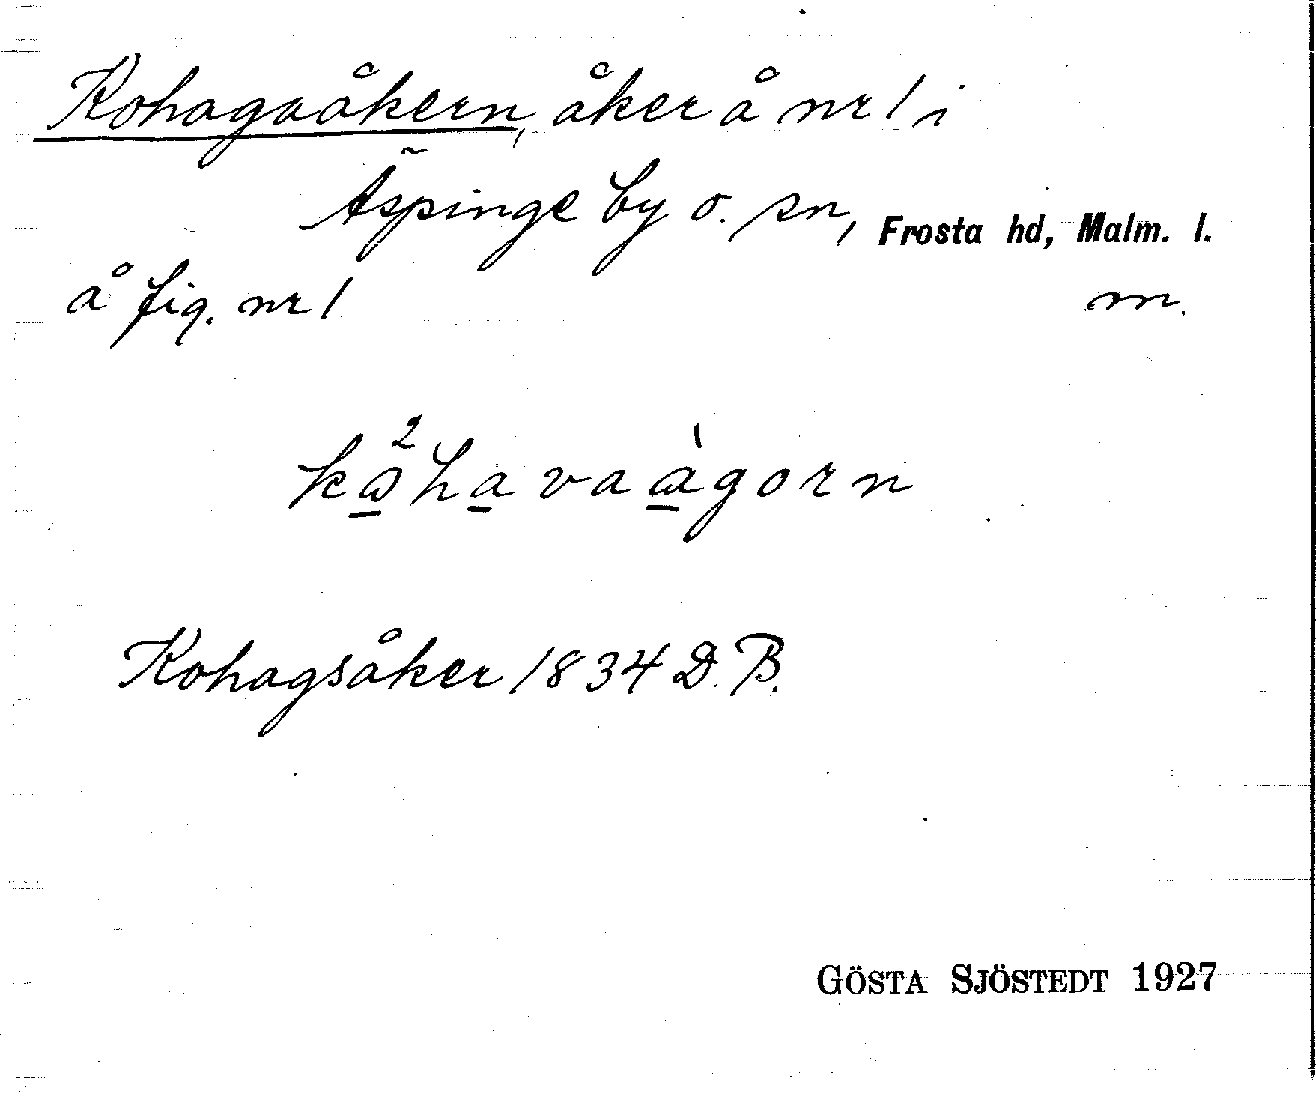 Kohagaåkern, åker å nr 1 i
Äspinge by o. sn, Frosta hd, Malm. l.
å fig. nr 1 m.
Kohagsåker 1834 D. B.
GÖSTA SJÖSTEDT 1927